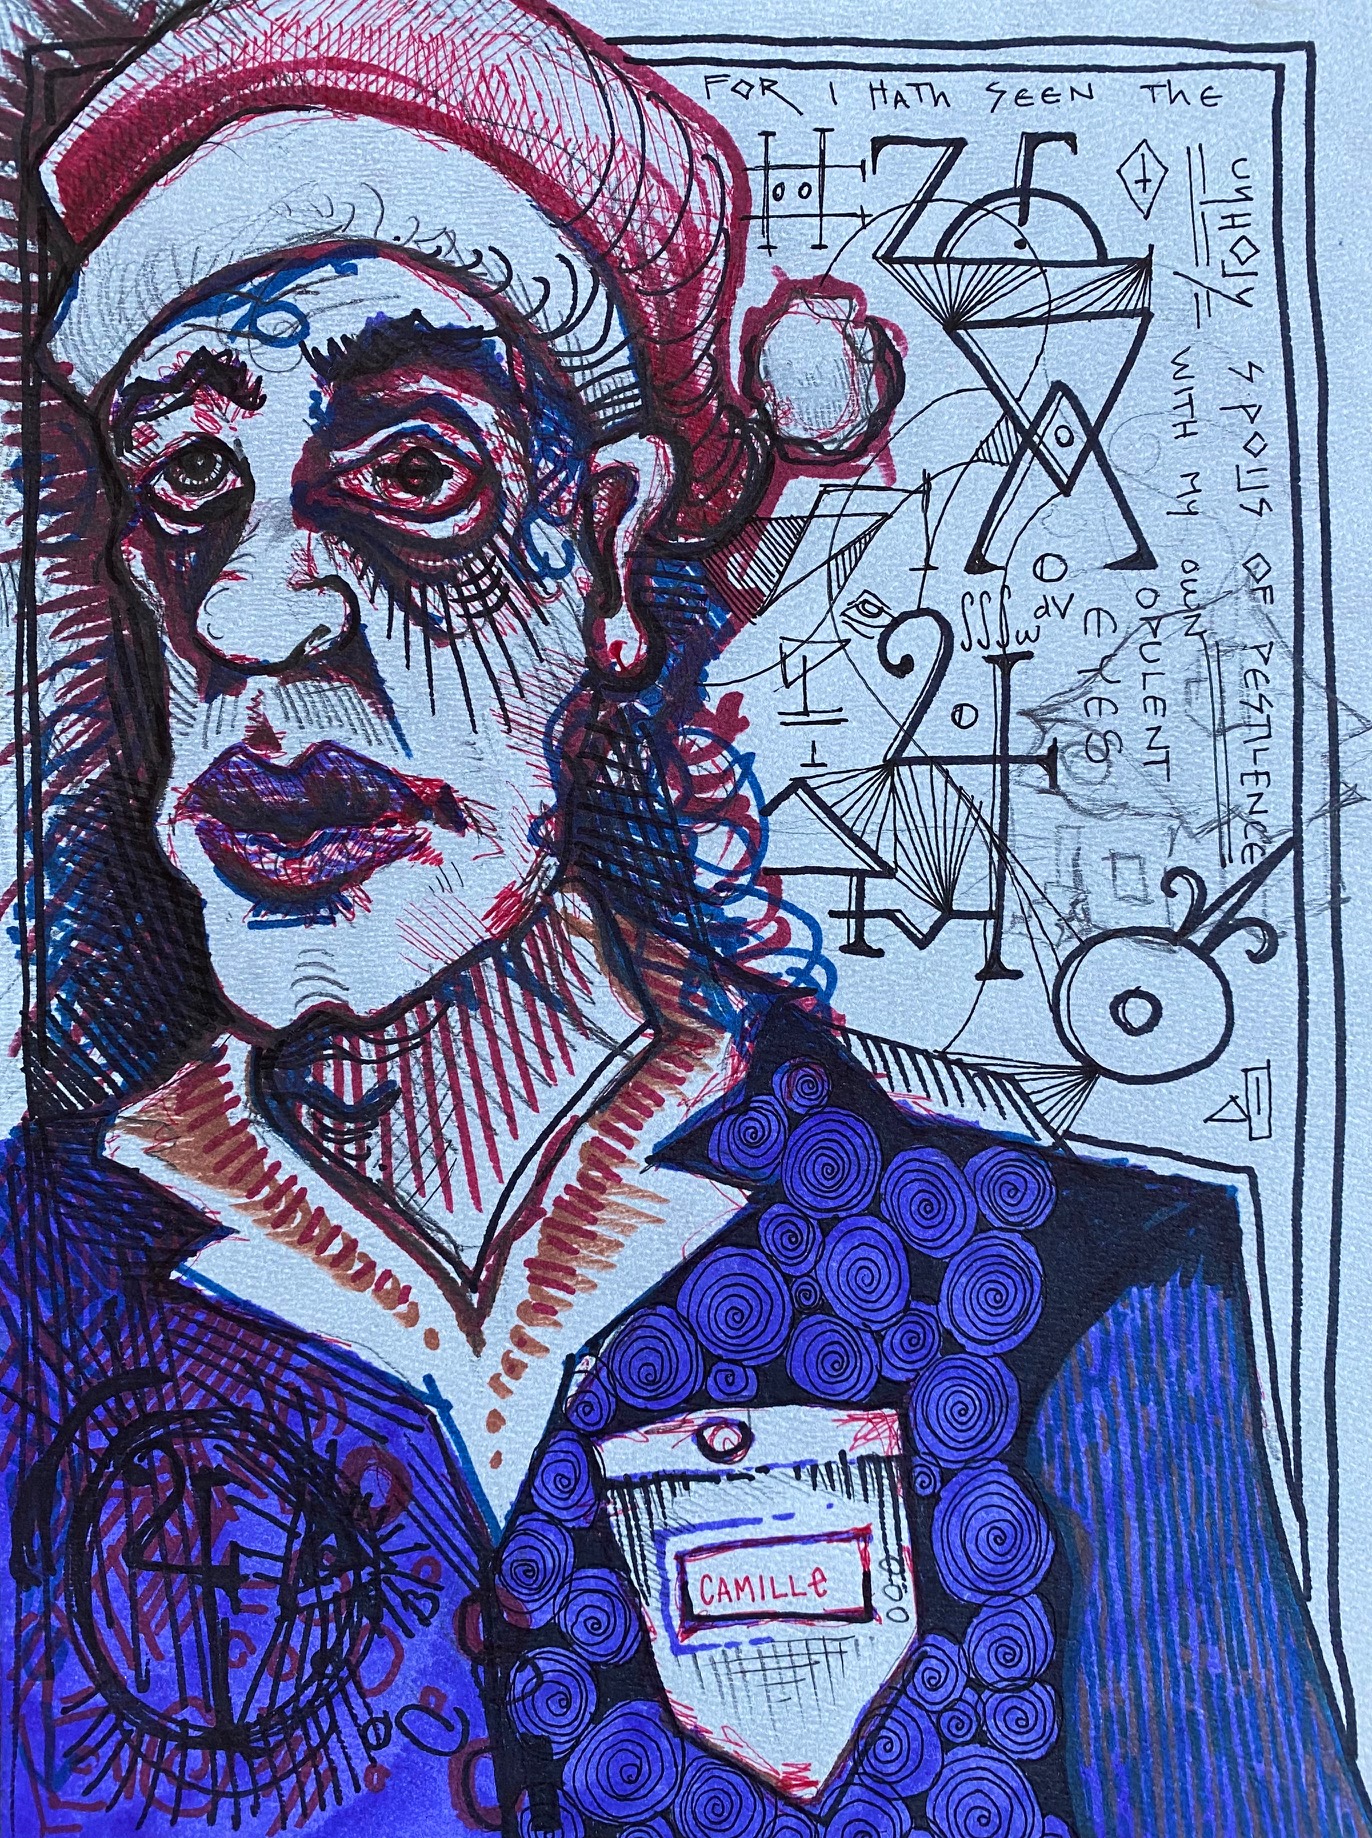 FOR I HATH SEEN THE
UNHOLY SPOILS OF PESTILENCE
WITH MY OWN
ORULENT
EYES
∭ω dV
CAMILLE